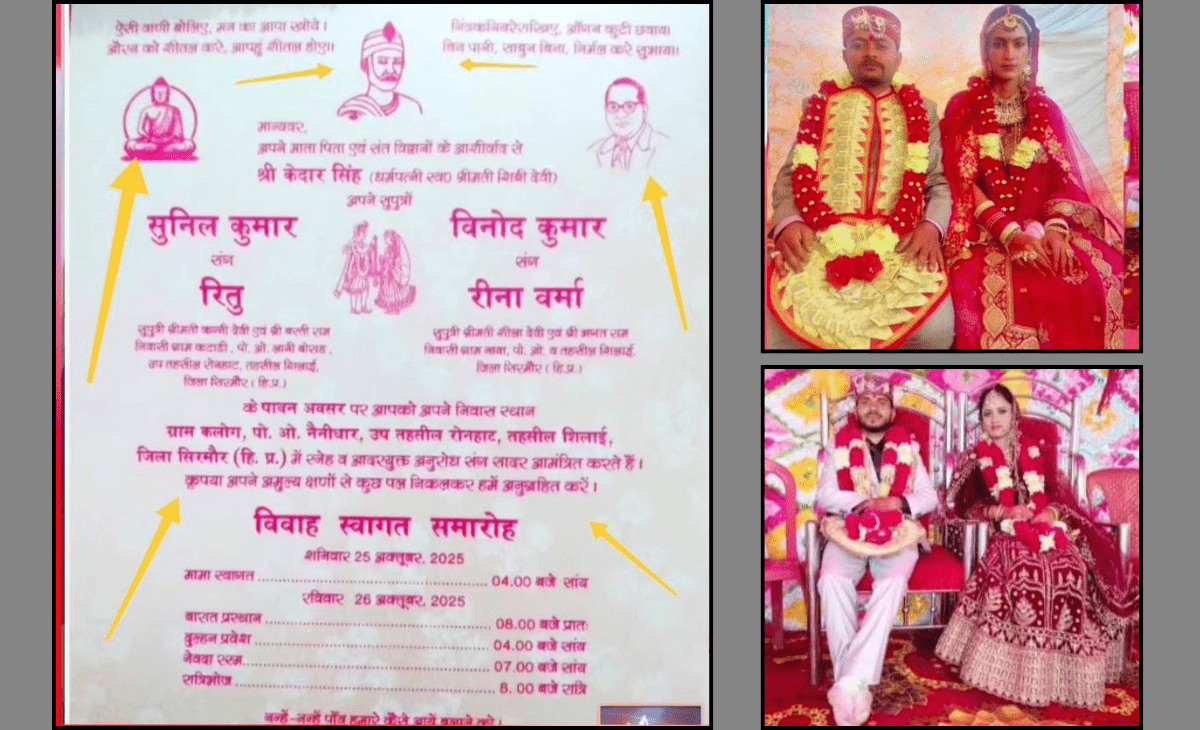 ऐसी वाणी बोलिए, मन का आपा खोये।
औरन को शीतल करे, आपहुं शीतल होए।।
निंदक नियरे राखिए, आँगन कुटी छवाय।
बिन पानी, साबुन बिना, निर्मल करे सुभाय।।
मान्यवर,
अपने माता पिता एवं संत विद्वानों के आशीर्वाद से
श्री केदार सिंह (धर्मपत्नी स्व0 श्रीमती शिबी देवी)
अपने सुपुत्रों
सुनिल कुमार
संग
रितु
सुपुत्री श्रीमती कल्मी देवी एवं श्री बस्ती राम
निवासी ग्राम कटाडी, पो. ओ. लानी बोराड,
उप तहसील रोनहाट, तहसील शिलाई,
जिला सिरमौर (हि.प्र.)
विनोद कुमार
संग
रीना वर्मा
सुपुत्री श्रीमती शीला देवी एवं श्री भगत राम
निवासी ग्राम नाया, पो. ओ. व तहसील शिलाई,
जिला सिरमौर (हि.प्र.)
के पावन अवसर पर आपको अपने निवास स्थान
ग्राम कलोग, पो. ओ. नैनीधार, उप तहसील रोनहाट, तहसील शिलाई,
जिला सिरमौर (हि. प्र.) में स्नेह व आदरयुक्त अनुरोध संग सादर आमंत्रित करते हैं।
कृपया अपने अमुल्य क्षणों से कुछ पल निकलकर हमें अनुग्रहित करें।
विवाह स्वागत समारोह
शनिवार 25 अक्तूबर, 2025
मामा स्वागत ........ 04.00 बजे सांय
रविवार 26 अक्तूबर, 2025
बारात प्रस्थान ........ 08.00 बजे प्रातः
दुल्हन प्रवेश ........ 04.00 बजे सांय
नेवदा रस्म ........ 07.00 बजे सांय
रात्रिभोज ........ 8. 00 बजे रात्रि
नन्हें-नन्हें पाँव हमारे कैसे आयें बुलाने को।